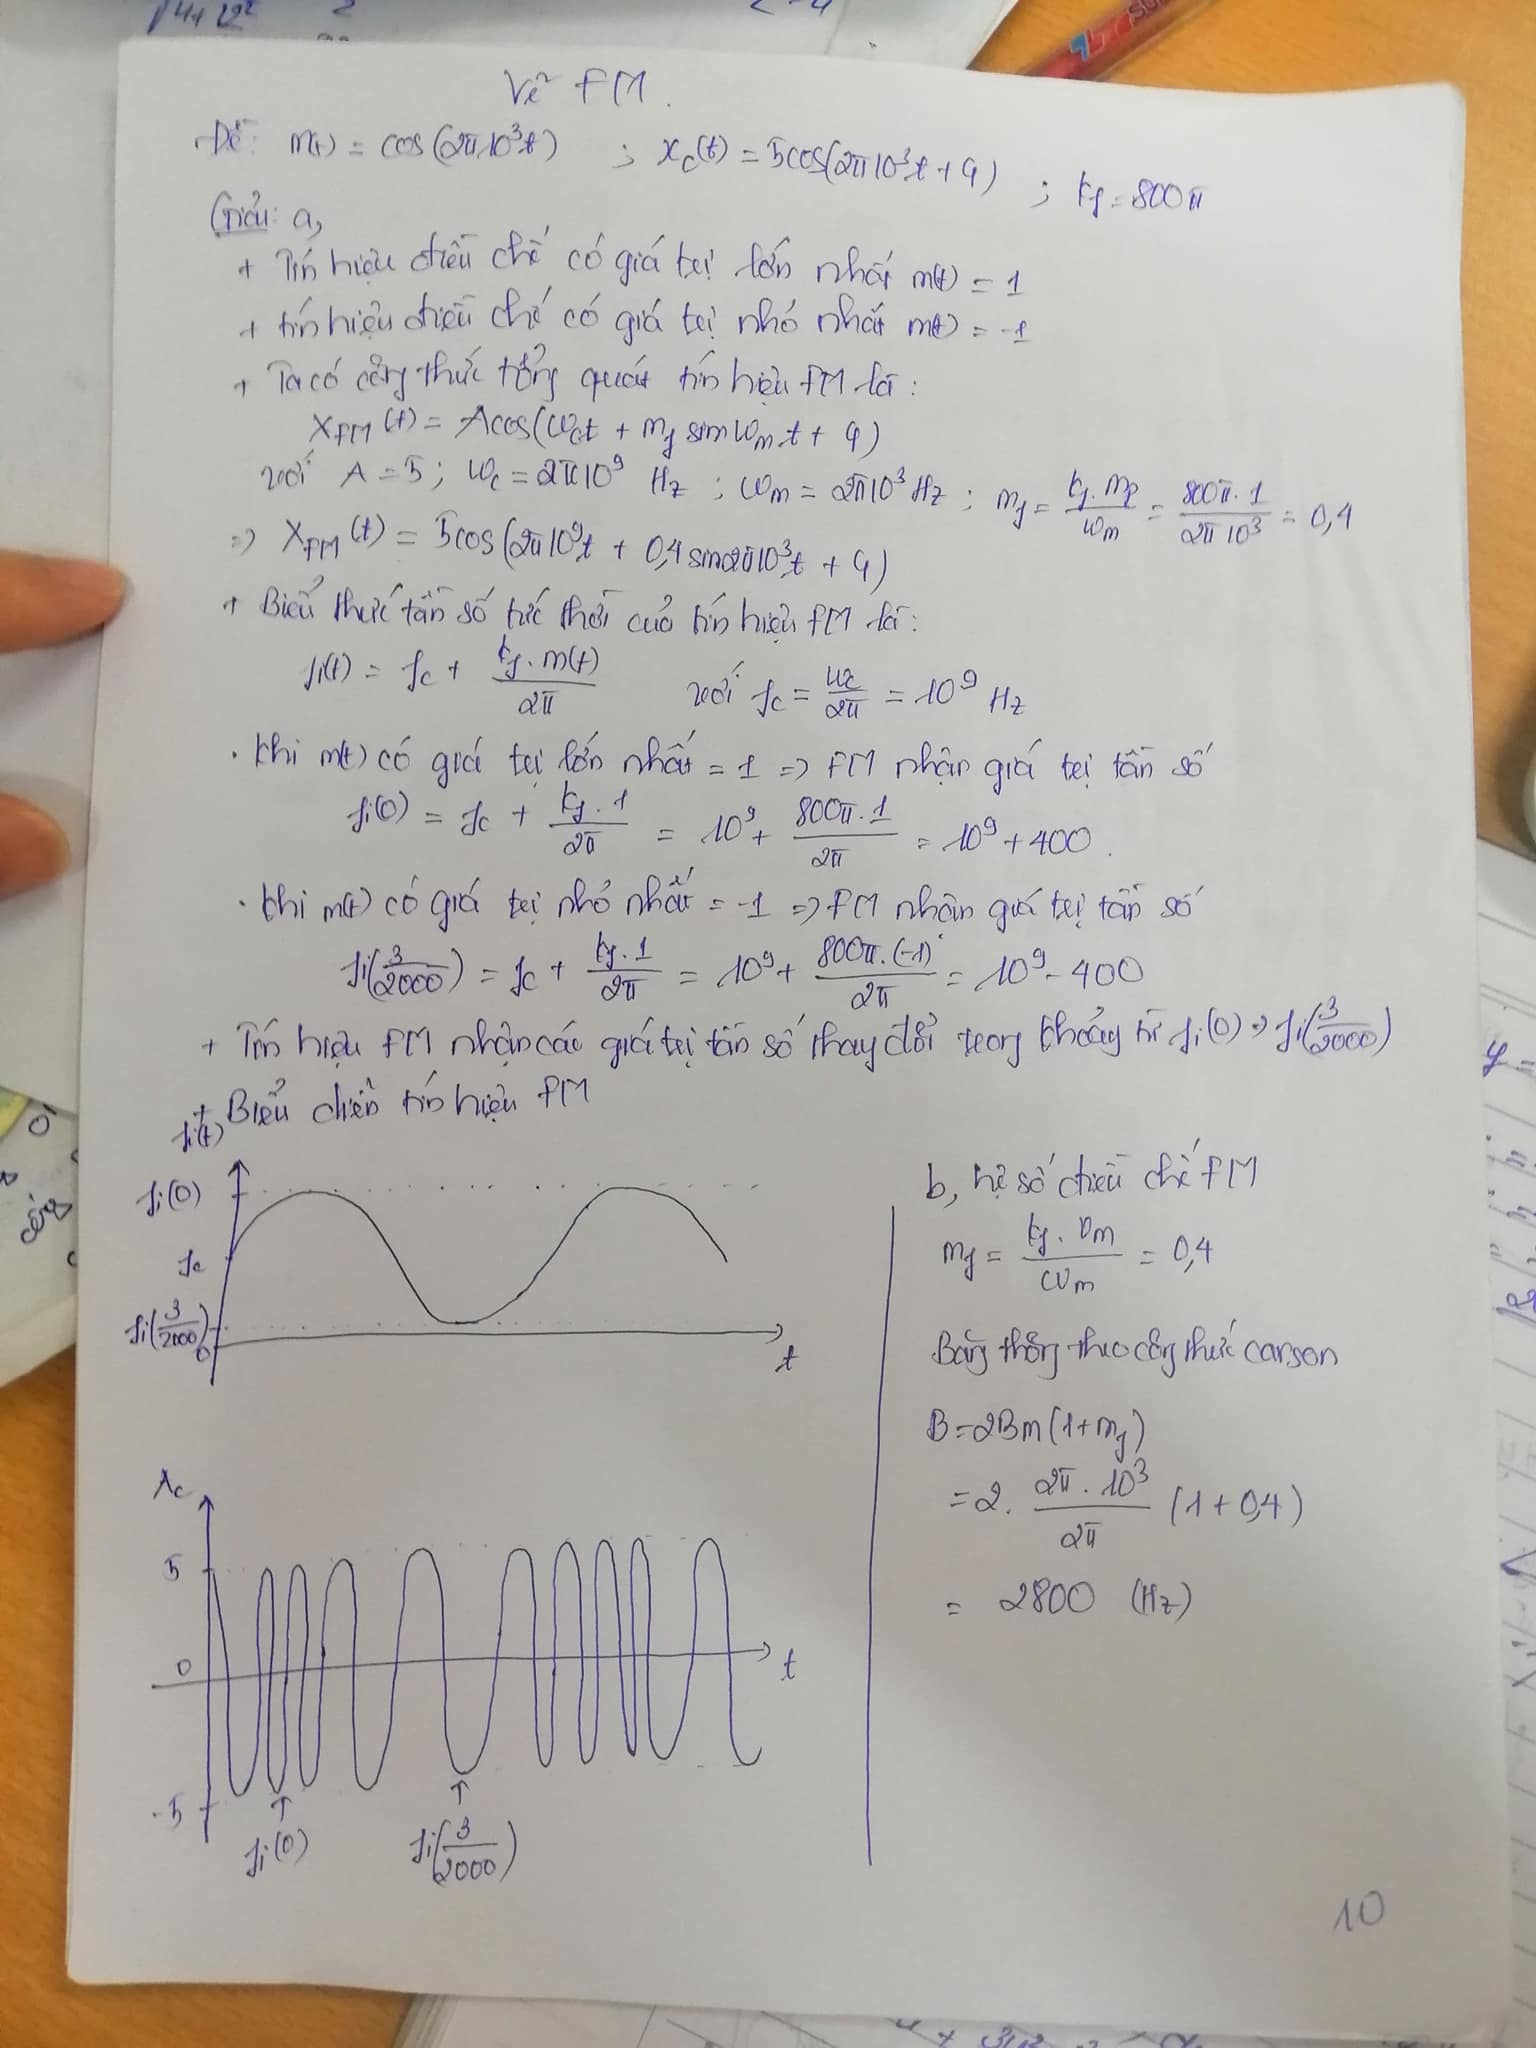 Vẽ FM.
Đề: m(t) = cos(2π10³t) ; x_c(t) = 5cos(2π10³t + φ) ; k_f = 800π
Giải: a,
+ Tín hiệu điều chế có giá trị lớn nhất m(t) = 1
+ tín hiệu điều chế có giá trị nhỏ nhất m(t) = -1
+ Ta có công thức tổng quát tín hiệu FM là:
X_FM(t) = Acos(ω_ct + m_f sinω_m t + φ)
với A = 5 ; ω_c = 2π10⁹ Hz ; ω_m = 2π10³ Hz ; m_f = k_f.m_p/ω_m = 800π.1/2π10³ = 0,4
=> X_FM(t) = 5cos(2π10⁹t + 0,4sin2π10³t + φ)
+ Biểu thức tần số tức thời của tín hiệu FM là:
f_i(t) = f_c + k_f.m(t)/2π với f_c = ω_c/2π = 10⁹ Hz
. Khi m(t) có giá trị lớn nhất = 1 => FM nhận giá trị tần số
f_i(0) = f_c + k_f.1/2π = 10⁹ + 800π.1/2π = 10⁹ + 400.
. Khi m(t) có giá trị nhỏ nhất = -1 => FM nhận giá trị tần số
f_i(3/2000) = f_c + k_f.1/2π = 10⁹ + 800π.(-1)/2π = 10⁹ - 400
+ Tín hiệu FM nhận các giá trị tần số thay đổi trong khoảng từ f_i(0) => f_i(3/2000)
+ Biểu diễn tín hiệu FM
f_i(t)
f_i(0)
f_c
f_i(3/2000)
0
t
A_c
5
0
t
-5
f_i(0)
f_i(3/2000)
b, hệ số điều chế FM
m_f = k_f.v_m/ω_m = 0,4
Băng thông theo công thức carson
B = 2Bm(1+m_f)
= 2. 2π.10³/2π (1 + 0,4)
= 2800 (Hz)
10